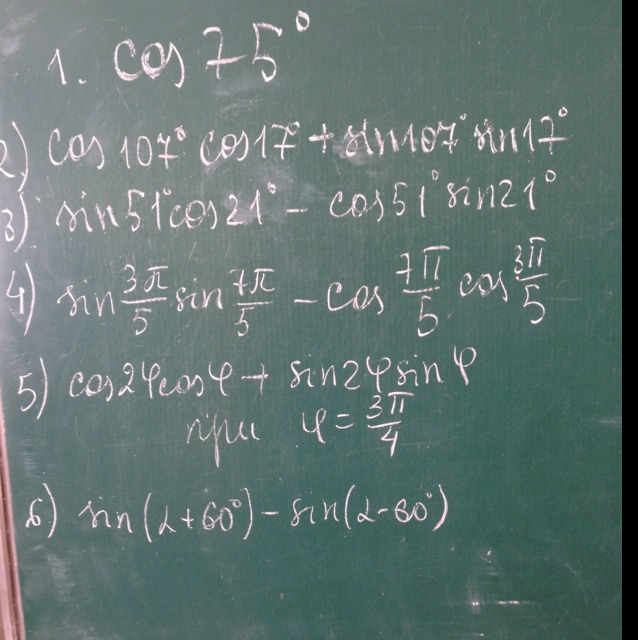 1. cos 75°
2) cos 107° cos 17° + sin 107° sin 17°
3) sin 51° cos 21° - cos 51° sin 21°
4) sin 3π/5 sin 7π/5 - cos 7π/5 cos 3π/5
5) cos2φcosφ + sin2φsinφ
при φ = 3π/4
6) sin(α+60°) - sin(α-60°)